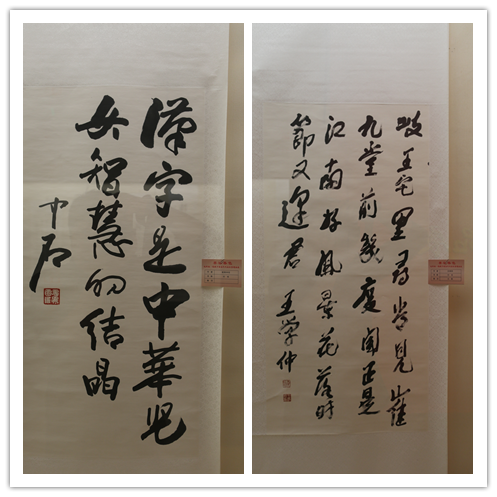 漢字是中華児
女智慧的结晶
中石
岐王宅里尋常見崔
九堂前幾度聞正是
江南好風景花落時
節又逢君
王學仲